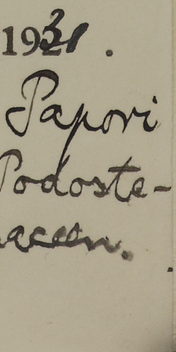 1931.
Papori
Podoste-
aceen.